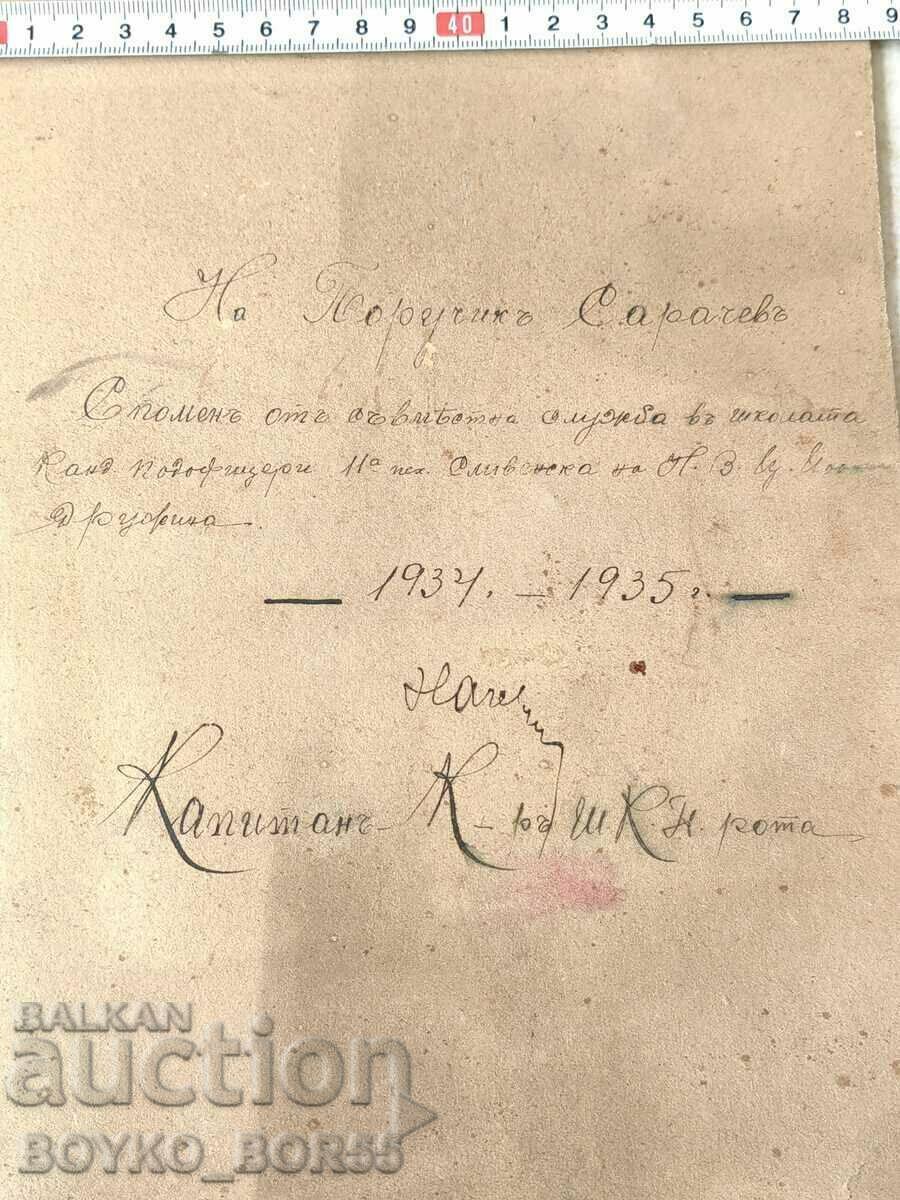 1 2 3 4 5 6 7 8 9 40 1 2 3 4 5 6 7 8 9
На Поручикъ Сарачевъ
Споменъ отъ съвмѣстна служба въ школата
Канд. подофицери 11а пех. Сливенска на Н. В.
Дружина.
1934. – 1935 г.
Капитанъ- К-ръ Ш К. Н. рота
BALKAN
auction
BOYKO_BOR55